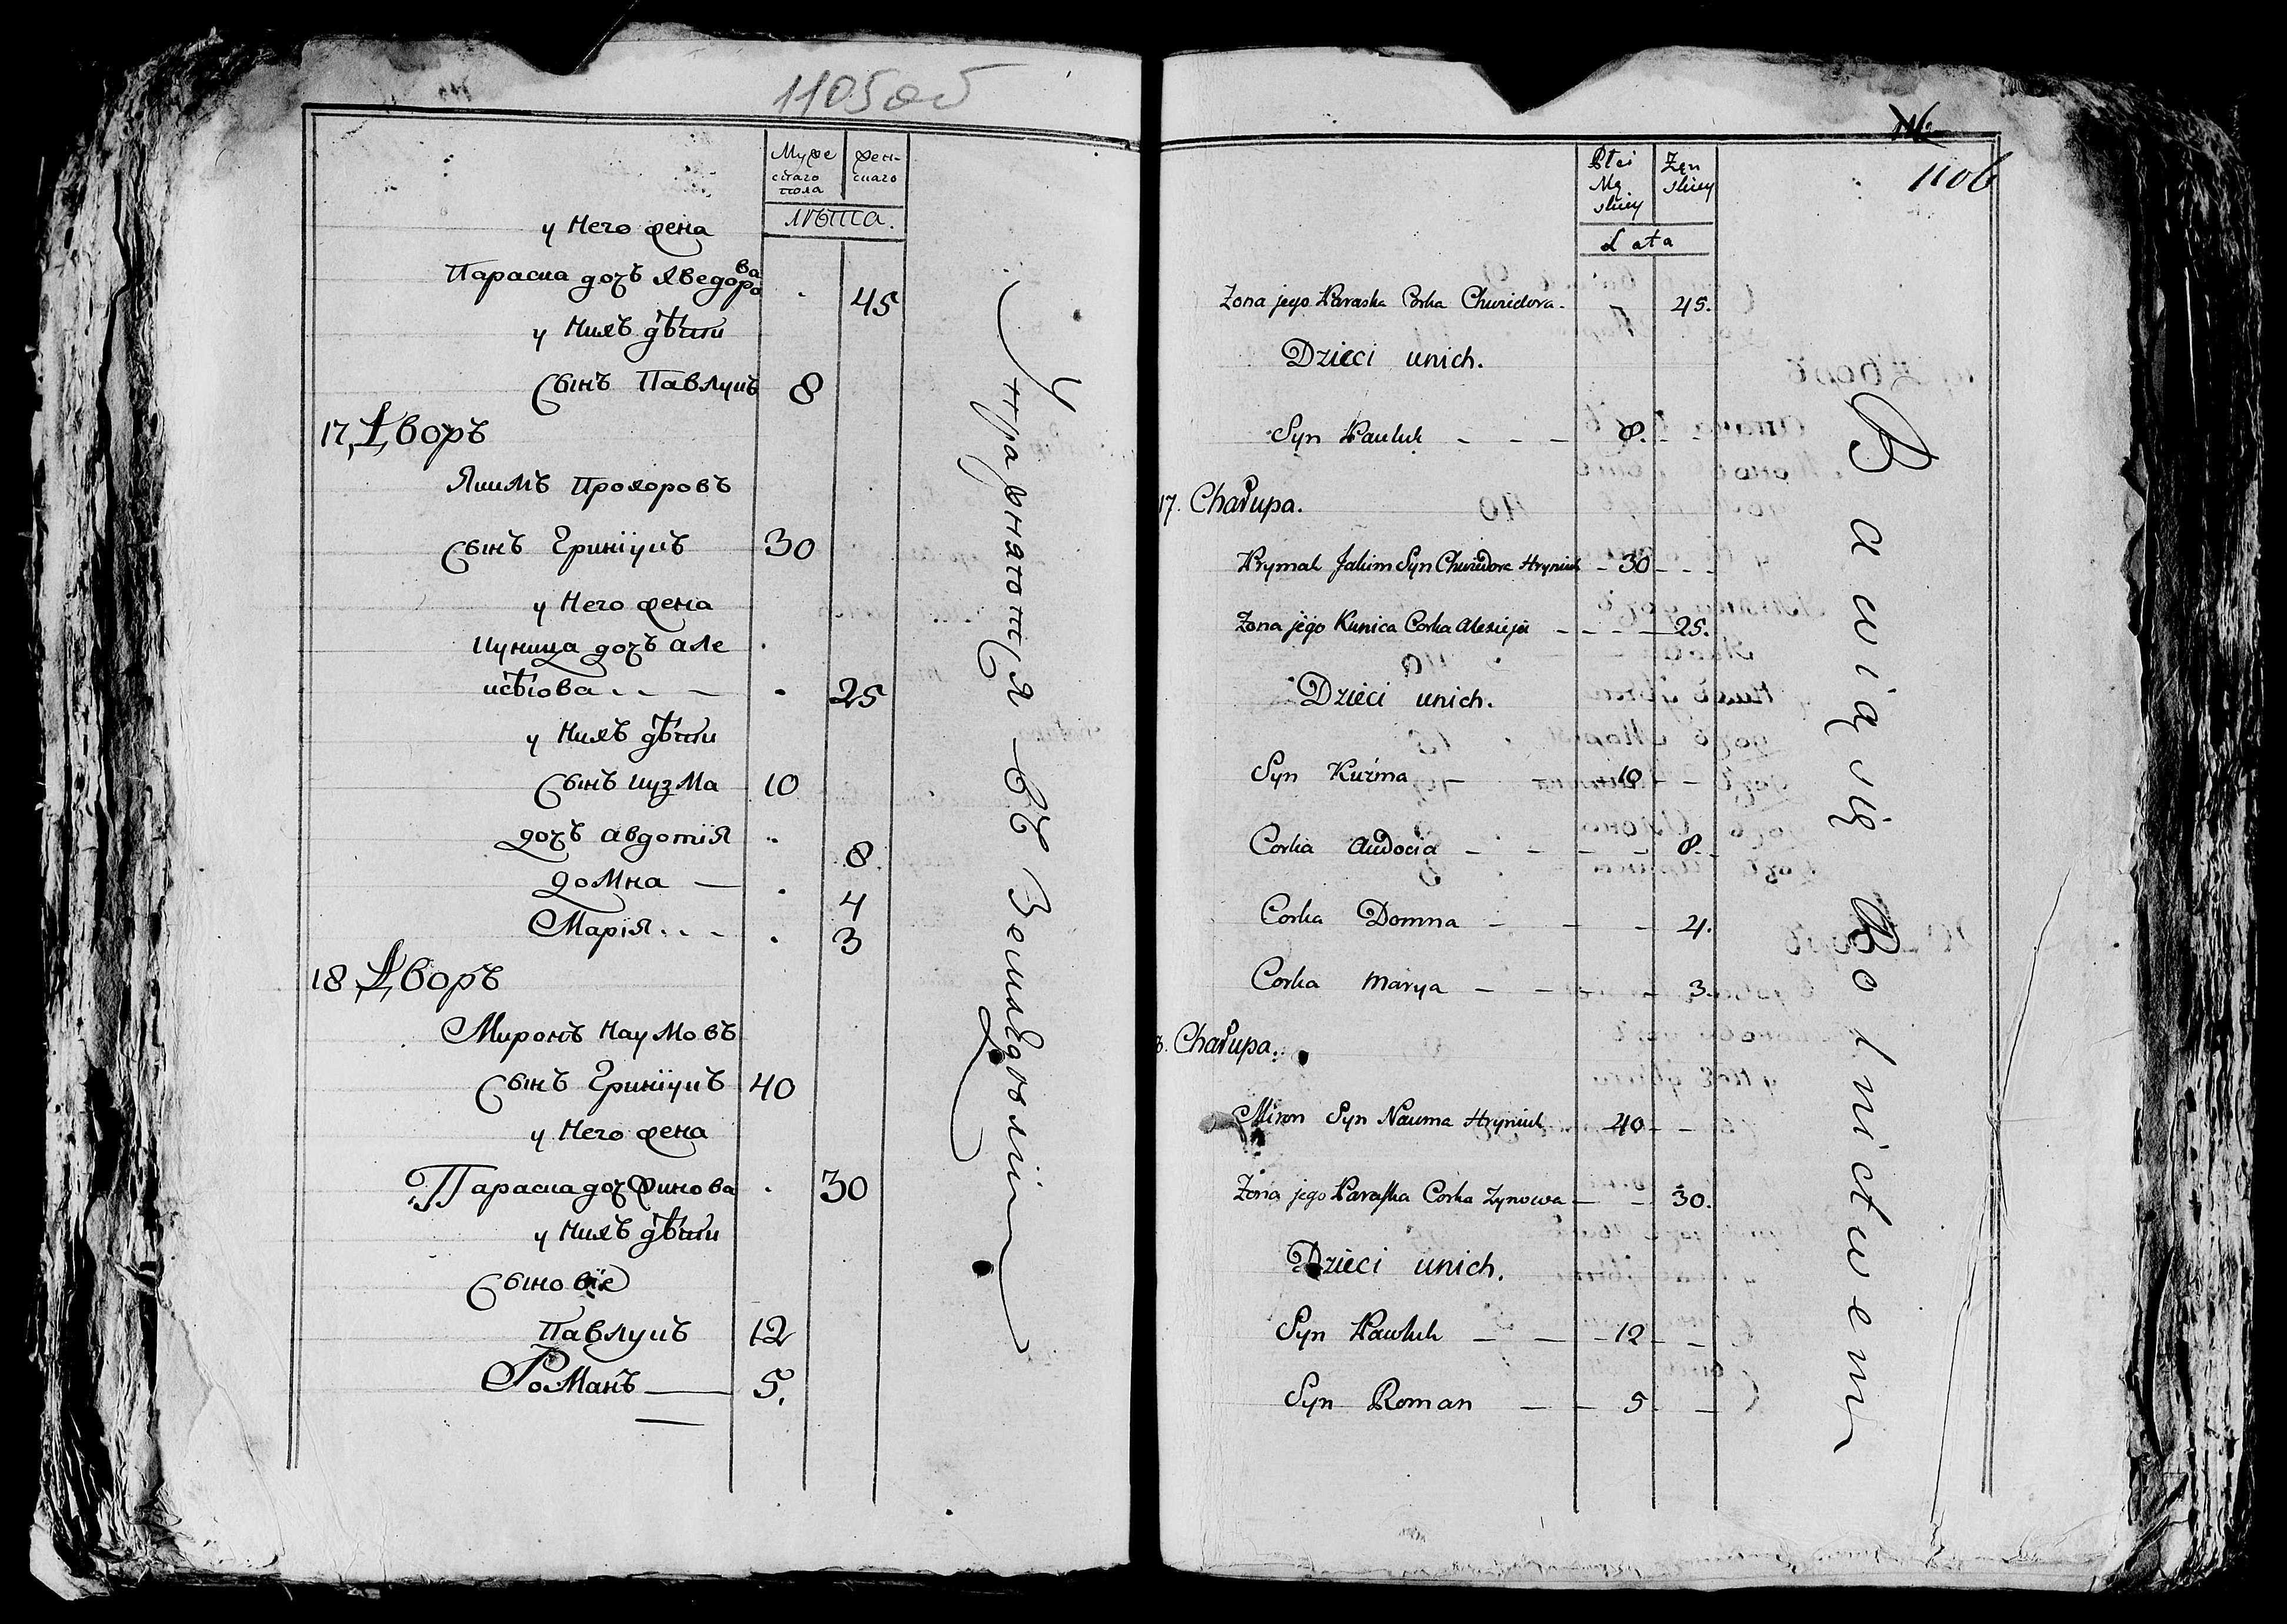 1105 об
Муже
скаго
пола
жен-
скаго
лѣта.
у Него жена
Параска дочъ Хведоро
ва
45
у Нихъ дѣти
Сынъ Павлукъ 8
17, Дворъ
Якимъ Прохоровъ
Сынъ Гринiукъ 30
у Него жена
куница дочъ але
ксѣiова 25
у Нихъ дѣти
Сынъ кузма 10
дочъ авдотiя 8.
домна — 4
Марiя 3
18 Дворъ
Миронъ Наумовъ
Сынъ Гринiукъ 40
у Него жена
Параска доч Зинова 30
у Нихъ дѣти
Сыновiе
Павлукъ 12
Романъ — 5.
Упражняются въ Земледѣлiи
1106
Płci
Mę
skiey
Żen
skiey
Lata
Zona jego Paraska Corka Chwidora. 45.
Dzieci unich.
Syn Pauluk - - - 8. - -
17. Chałupa.
Prymak Jakim Syn Chwidora Hryniuk - 30 - - -
Zona jego Kunica Corka Alexieja - - - - 25.
Dzieci unich.
Syn Kuźma - - 10 - -
Corka Audocia - - - - 8. -
Corka Domna - - - 4.
Corka Marya - - - - 3.
8. Chałupa.
Miron Syn Nauma Hryniuk 40 - -
Zona jego Paraska Corka Zynowa - - 30.
Dzieci unich.
Syn Pawluk - - - 12 - -
Syn Roman - - 5 - -
Bawią się Rolnictwem